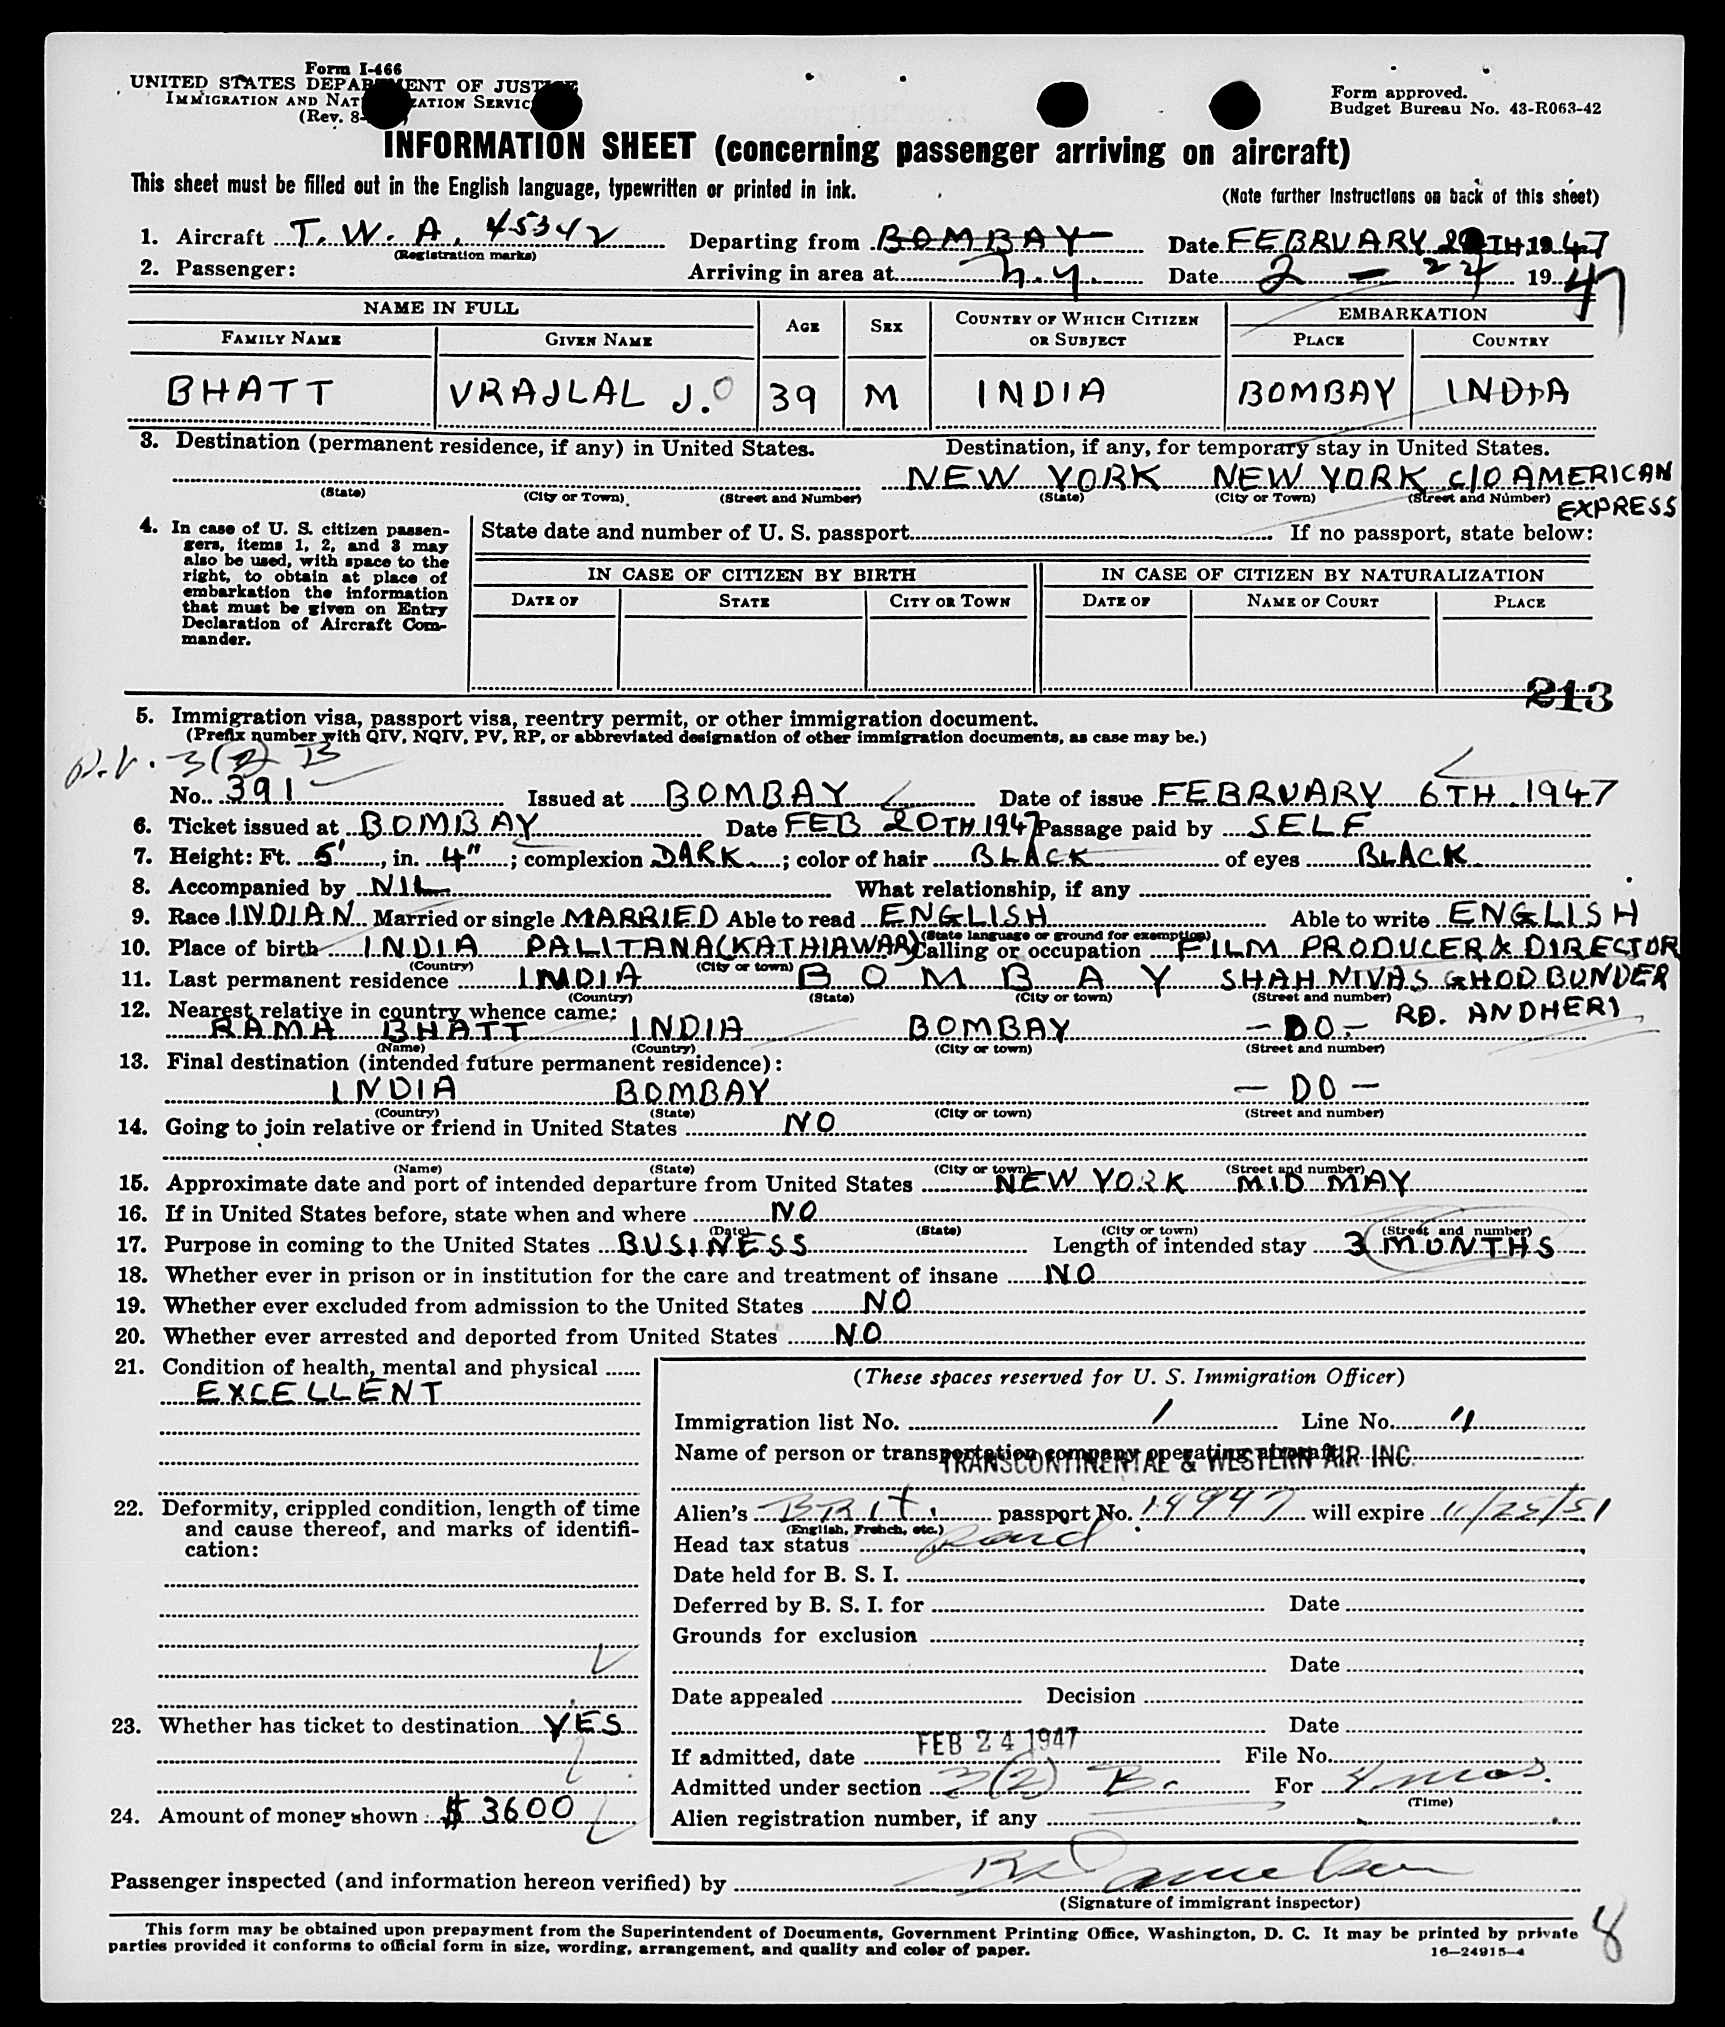 Form I-466
UNITED STATES DEPARTMENT OF JUSTICE
IMMIGRATION AND NATURALIZATION SERVICE
(Rev. 8-
Form approved.
Budget Bureau No. 43-R063-42
INFORMATION SHEET (concerning passenger arriving on aircraft)
This sheet must be filled out in the English language, typewritten or printed in ink.
(Note further instructions on back of this sheet)
1. Aircraft T.W.A. 45342 Departing from BOMBAY Date FEBRUARY TH 1947
(Registration marks)
2. Passenger: Arriving in area at N.Y. Date 2 - 24 1947
NAME IN FULL AGE SEX COUNTRY OF WHICH CITIZEN OR SUBJECT EMBARKATION
FAMILY NAME GIVEN NAME PLACE COUNTRY
BHATT VRAJLAL J. 39 M INDIA BOMBAY INDIA
3. Destination (permanent residence, if any) in United States. Destination, if any, for temporary stay in United States.
NEW YORK NEW YORK C/O AMERICAN
(State) (City or Town) (Street and Number) (State) (City or Town) (Street and Number)
EXPRESS
4. In case of U. S. citizen passen-
gers, items 1, 2, and 3 may
also be used, with space to the
right, to obtain at place of
embarkation the information
that must be given on Entry
Declaration of Aircraft Com-
mander.
State date and number of U. S. passport If no passport, state below:
IN CASE OF CITIZEN BY BIRTH IN CASE OF CITIZEN BY NATURALIZATION
DATE OF STATE CITY OR TOWN DATE OF NAME OF COURT PLACE
213
5. Immigration visa, passport visa, reentry permit, or other immigration document.
(Prefix number with QIV, NQIV, PV, RP, or abbreviated designation of other immigration documents, as case may be.)
P.V. 3(2) B
No. 391 Issued at BOMBAY Date of issue FEBRUARY 6TH 1947
6. Ticket issued at BOMBAY Date FEB 20TH 1947 Passage paid by SELF
7. Height: Ft. 5', in. 4"; complexion DARK; color of hair BLACK of eyes BLACK
8. Accompanied by NIL What relationship, if any
9. Race INDIAN Married or single MARRIED Able to read ENGLISH Able to write ENGLISH
(State language or ground for exemption)
10. Place of birth INDIA PALITANA(KATHIAWAR) Calling or occupation FILM PRODUCER & DIRECTOR
(Country) (City or town)
11. Last permanent residence INDIA BOMBAY SHAH NIVAS GHOD BUNDER
(Country) (State) (City or town) (Street and number)
RD. ANDHERI
12. Nearest relative in country whence came:
RAMA BHATT INDIA BOMBAY - DO -
(Name) (Country) (City or town) (Street and number)
13. Final destination (intended future permanent residence):
INDIA BOMBAY - DO -
(Country) (State) (City or town) (Street and number)
14. Going to join relative or friend in United States NO
(Name) (State) (City or town) (Street and number)
15. Approximate date and port of intended departure from United States NEW YORK MID MAY
16. If in United States before, state when and where NO
(Date) (State) (City or town) (Street and number)
17. Purpose in coming to the United States BUSINESS Length of intended stay 3 MONTHS
18. Whether ever in prison or in institution for the care and treatment of insane NO
19. Whether ever excluded from admission to the United States NO
20. Whether ever arrested and deported from United States NO
21. Condition of health, mental and physical
EXCELLENT
22. Deformity, crippled condition, length of time
and cause thereof, and marks of identifi-
cation:
23. Whether has ticket to destination YES
24. Amount of money shown $ 3600
(These spaces reserved for U. S. Immigration Officer)
Immigration list No. 1 Line No. 4
Name of person or transportation company operating aircraft
TRANSCONTINENTAL & WESTERN AIR INC.
Alien's BRIT. passport No. 14947 will expire 11/25/51
(English, French, etc.)
Head tax status paid
Date held for B. S. I.
Deferred by B. S. I. for Date
Grounds for exclusion
Date
Date appealed Decision
Date
If admitted, date FEB 24 1947 File No.
Admitted under section 3(2) B. For 4 mos.
(Time)
Alien registration number, if any
Passenger inspected (and information hereon verified) by
(Signature of immigrant inspector)
This form may be obtained upon prepayment from the Superintendent of Documents, Government Printing Office, Washington, D. C. It may be printed by private
parties provided it conforms to official form in size, wording, arrangement, and quality and color of paper.
16—24915-4
8